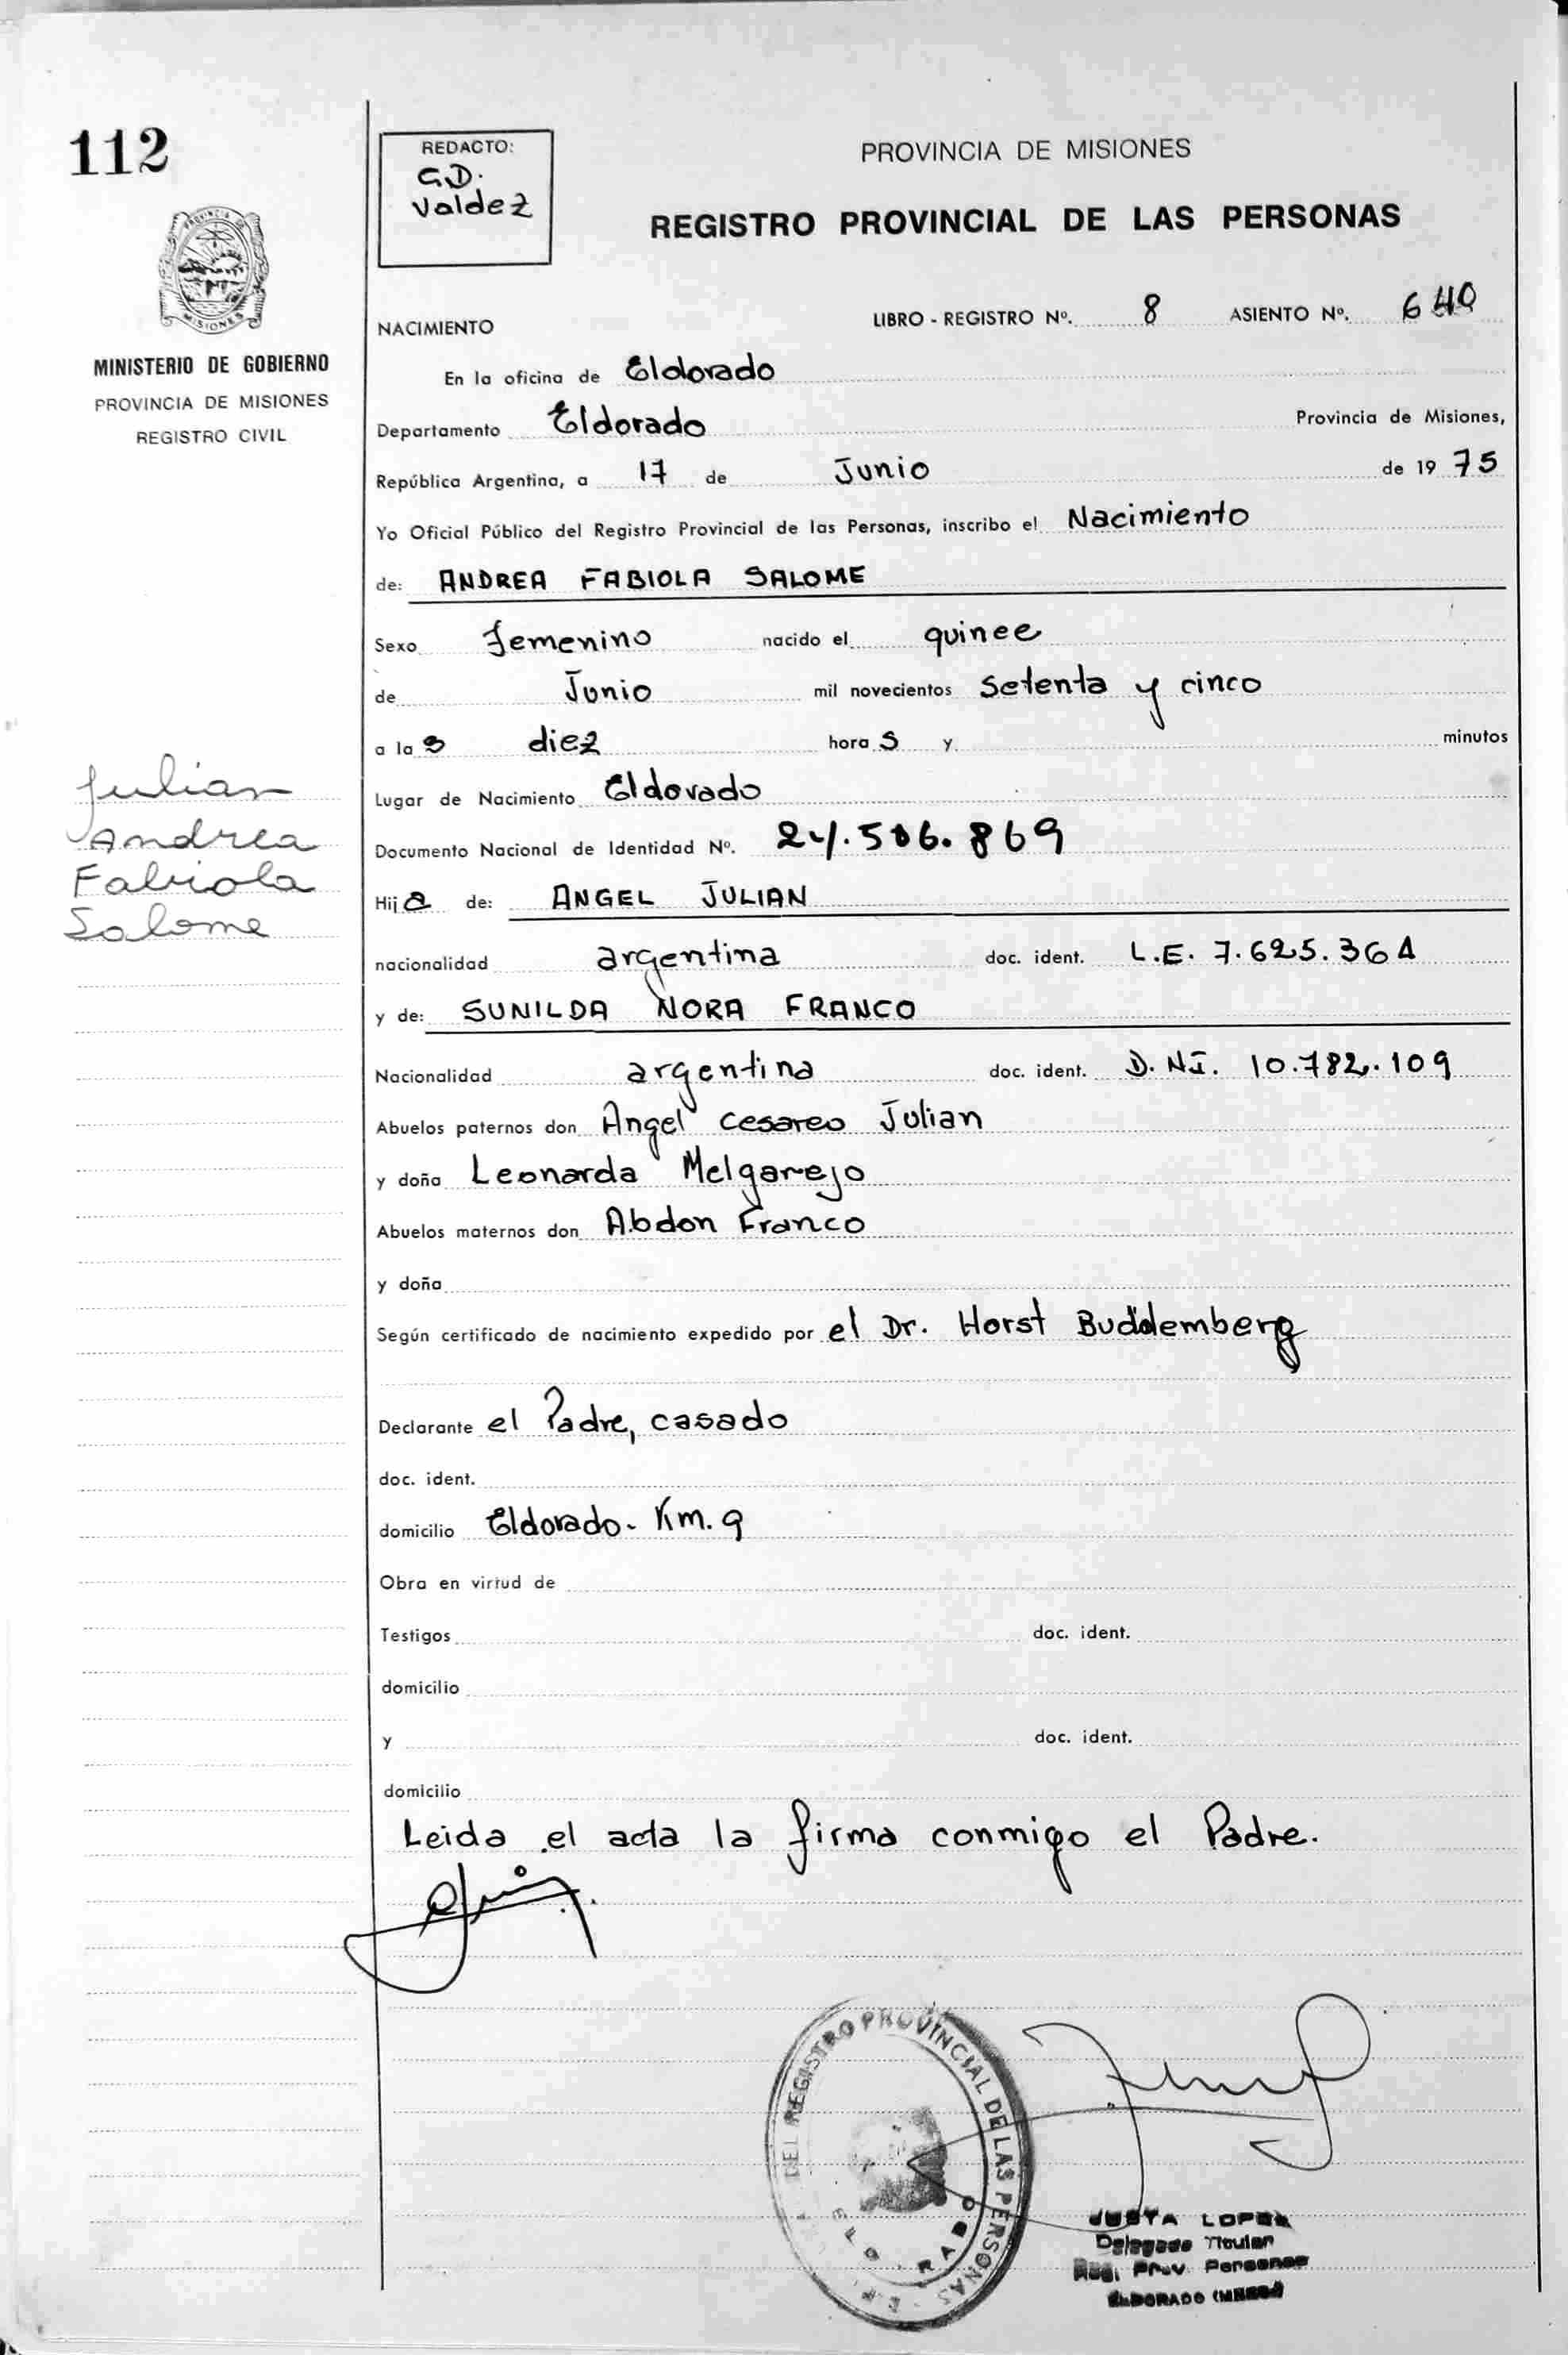 112
REDACTO:
G.D.
Valdez
PROVINCIA DE MISIONES
REGISTRO PROVINCIAL DE LAS PERSONAS
MISIONES
MINISTERIO DE GOBIERNO
PROVINCIA DE MISIONES
REGISTRO CIVIL
NACIMIENTO LIBRO - REGISTRO Nº. 8 ASIENTO Nº. 640
En la oficina de Eldorado
Departamento Eldorado Provincia de Misiones,
República Argentina, a 17 de Junio de 19 75
Yo Oficial Público del Registro Provincial de las Personas, inscribo el Nacimiento
de: ANDREA FABIOLA SALOME
Sexo femenino nacido el quince
de Junio mil novecientos setenta y cinco
a la s diez hora s y minutos
Lugar de Nacimiento Eldorado
Documento Nacional de Identidad Nº. 24.506.869
Hij a de: ANGEL JULIAN
nacionalidad argentina doc. ident. L.E. 7.625.361
y de: SUNILDA NORA FRANCO
Nacionalidad argentina doc. ident. D.NI. 10.782.109
Abuelos paternos don Angel Cesareo Julian
y doña Leonarda Melgarejo
Abuelos maternos don Abdon Franco
y doña
Según certificado de nacimiento expedido por el Dr. Horst Buddemberg
Declarante el Padre, casado
doc. ident.
domicilio Eldorado- Km. 9
Obra en virtud de
Testigos doc. ident.
domicilio
y doc. ident.
domicilio
Leida el acta la firma conmigo el Padre.
Julian
Andrea
Fabiola
Salome
DEL REGISTRO PROVINCIAL DE LAS PERSONAS
JUSTA LOPEZ
Delegada Titular
Reg. Prov. Personas
ELDORADO